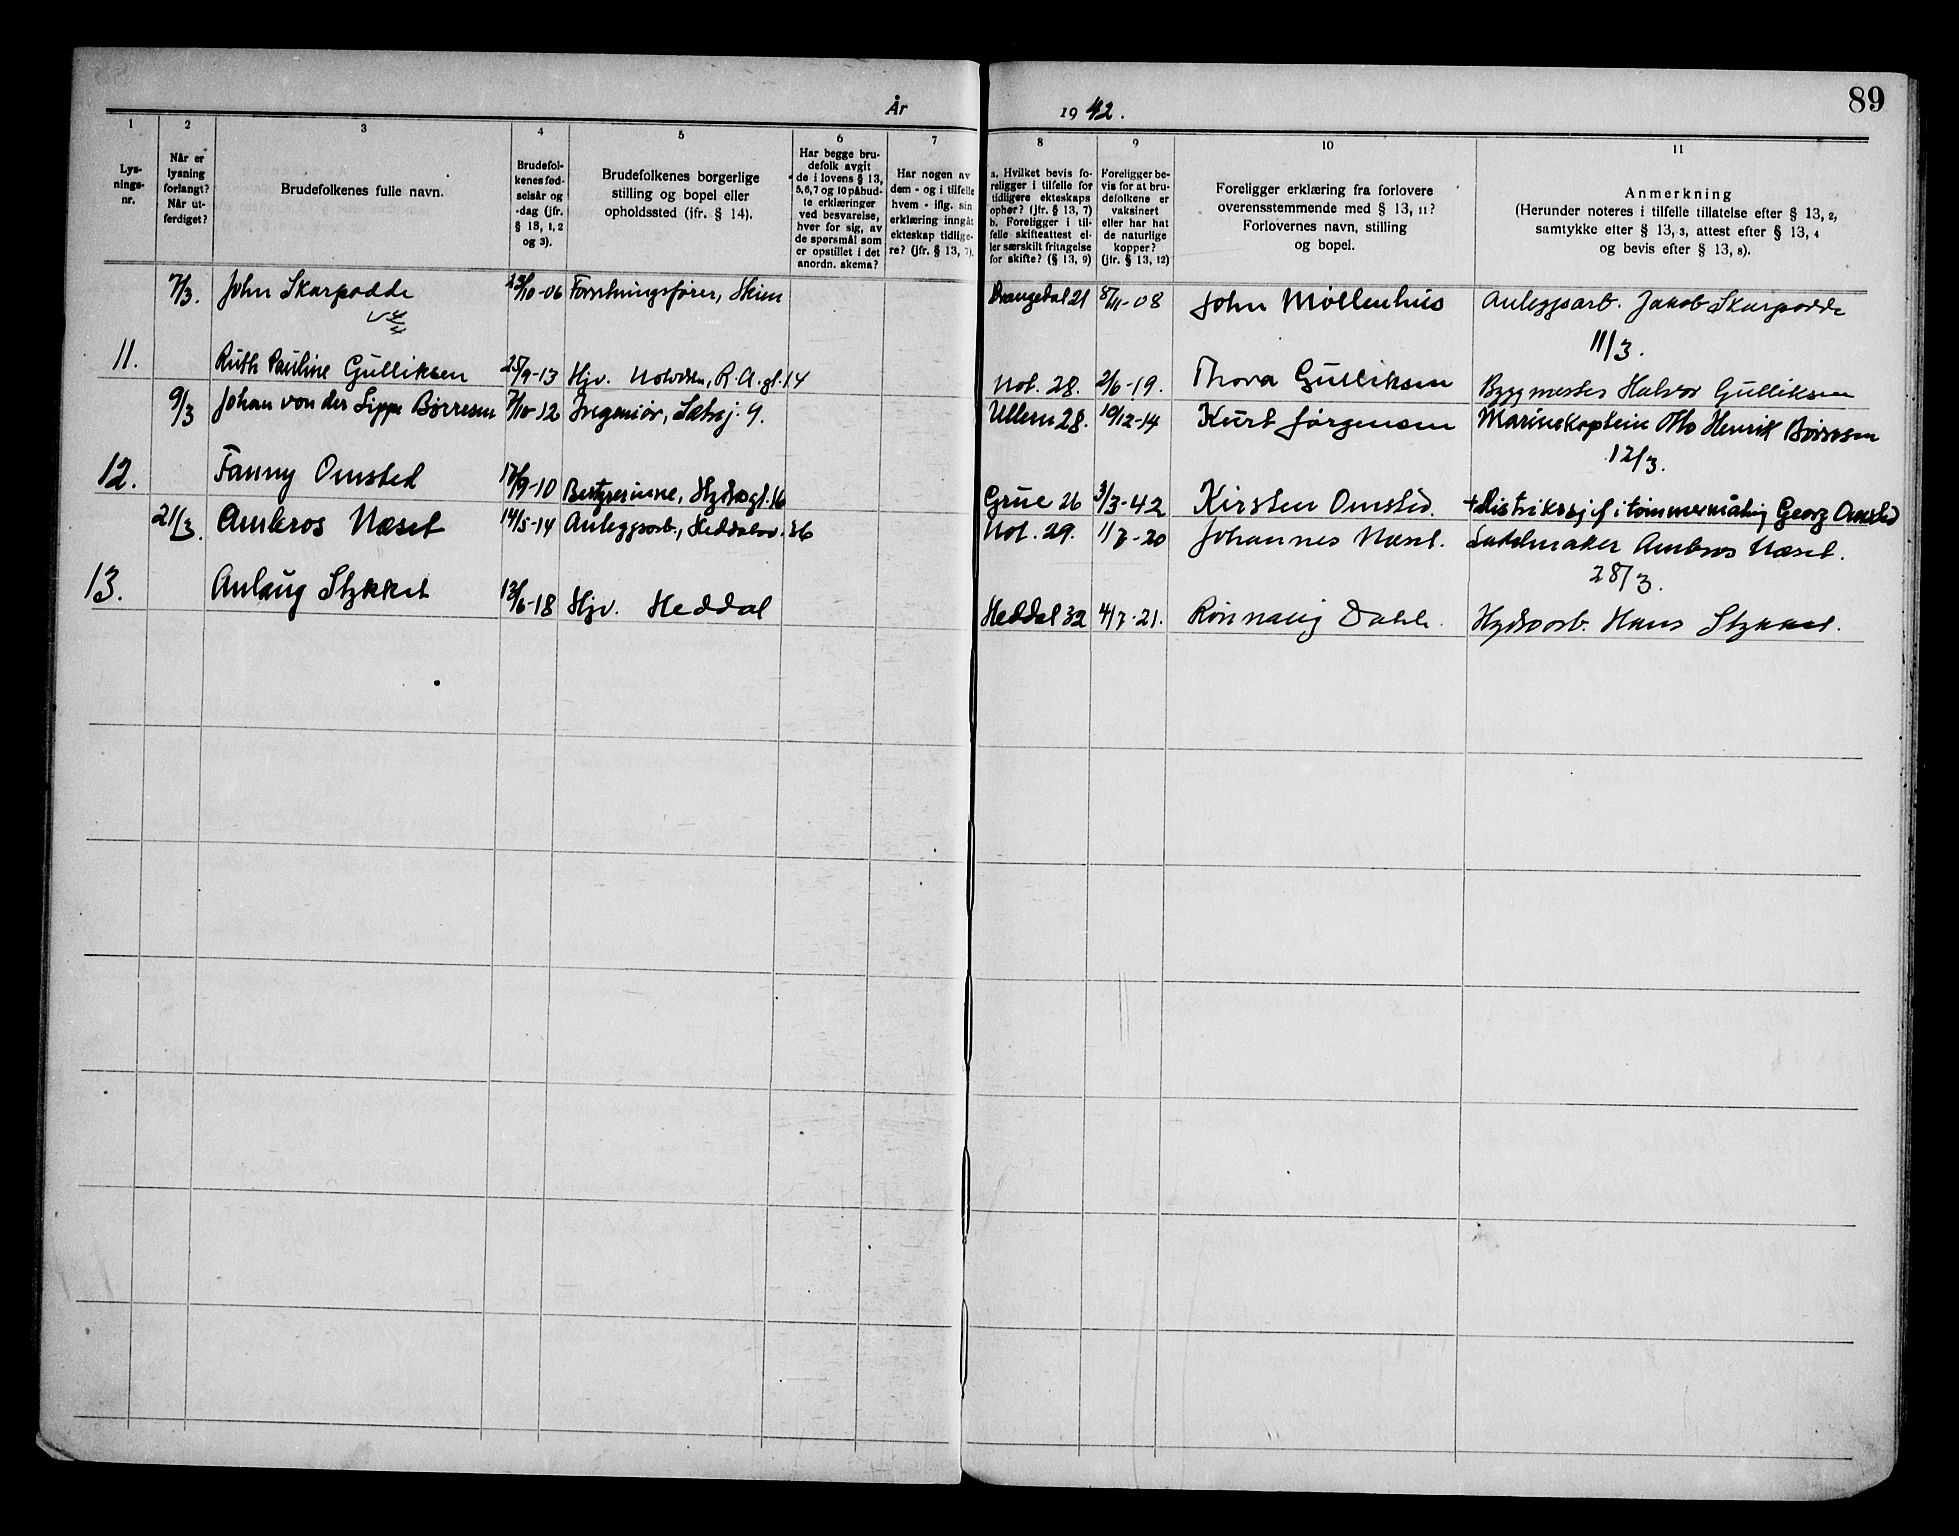 89
År 1942.
1
2
3
4
5
6
7
8
9
10
11
Lys-
nings-
nr.
Når er
lysning
forlangt?
Når ut-
ferdiget?
Brudefolkenes fulle navn.
Brudefol-
kenes fød-
selsår og
-dag (jfr.
§ 13, 1, 2
og 3).
Brudefolkenes borgerlige
stilling og bopel eller
opholdssted (jfr. § 14).
Har begge bru-
defolk avgit
de i lovens § 13,
5, 6, 7 og 10 påbud-
te erklæringer
ved besvarelse,
hver for sig, av
de spørsmål som
er opstillet i det
anordn. skema?
Har nogen av
dem - og i tilfelle
hvem - iflg. sin
erklæring inngåt
ekteskap tidlige-
re? (jfr. § 13, 7).
a. Hvilket bevis fo-
religger i tilfelle for
tidligere ekteskaps
ophør? (jfr. § 13, 7)
b. Foreligger i til-
felle skifteattest el-
ler særskilt fritagelse
for skifte? (§ 13, 9)
Foreligger be-
vis for at bru-
defolkene er
vaksinert
eller har hat
de naturlige
kopper?
(jfr. § 13, 12)
Foreligger erklæring fra forlovere
overensstemmende med § 13, 11?
Forlovernes navn, stilling
og bopel.
Anmerkning
(Herunder noteres i tilfelle tillatelse efter § 13, 2,
samtykke efter § 13, 3, attest efter § 13, 4
og bevis efter § 13, 8).
7/3. John Skarpodde 25/10-06 Forretningsfører, Skien Drangedal 21 8/11-08 John Møllenhus Anleggsarb. Jakob Skarpodde
11/3.
11. Ruth Pauline Gulliksen 25/9-13 Hjv. Notodden, R.A.gt. 14 Not. 28. 2/6-19. Thora Gulliksen Byggmester Halvor Gulliksen
9/3 Johan von der Lippe Børresen 7/10-12 Ingeniør, Sætrej. 9. Ullern 28. 10/12-14 Kurt Jørgensen Marinekaptein Otto Henrik Børresen
12/3.
12. Fanny Omsted 17/9-10 Bestyrerinne, Hydrogt. 16 Grue 26 3/3-42 Kirsten Omsted. + Distriktssjef i tømmermåling Georg Omsted
21/3. Ambros Næset 14/5-14 Anleggsarb., Heddalsv. 36 Not. 29. 11/7-20 Johannes Næset. Sadelmaker Ambros Næset.
28/3.
13. Anlaug Stykket 13/6-18 Hjv. Heddal Heddal 32 4/7-21. Rønnaug Dahle. Hydroarb. Hans Stykket.